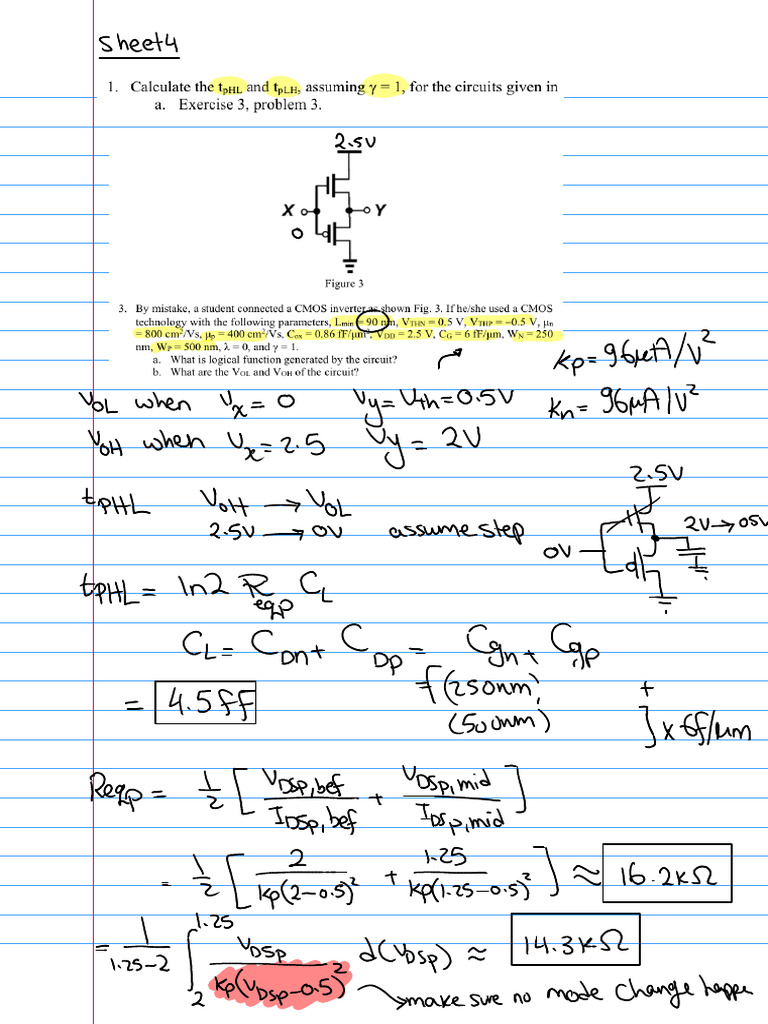 Sheet4
1. Calculate the tpHL and tpLH, assuming γ = 1, for the circuits given in
a. Exercise 3, problem 3.
2.5V
X
Y
0
Figure 3
3. By mistake, a student connected a CMOS inverter as shown Fig. 3. If he/she used a CMOS
technology with the following parameters, Lmin = 90 nm, VTHN = 0.5 V, VTHP = –0.5 V, μn
= 800 cm²/Vs, μp = 400 cm²/Vs, Cox = 0.86 fF/μm², VDD = 2.5 V, CG = 6 fF/μm, WN = 250
nm, WP = 500 nm, λ = 0, and γ = 1.
a. What is logical function generated by the circuit?
b. What are the VOL and VOH of the circuit?
kp = 96μA/V²
VOL when Vx = 0 Vy = Vth = 0.5V kn = 96μA/V²
VOH when Vx = 2.5 Vy = 2V
2.5V
tPHL VOH → VOL
2.5V → 0V assume step
2V → 05V
0V
tPHL = ln2 Reqp CL
CL = CDn + CDp = Cgn + Cgp
(250nm) +
= 4.5fF (500nm) } x 6f/μm
Reqp = 1/2 [ VDSp,bef / IDSp,bef + VDSp,mid / IDSp,mid ]
= 1/2 [ 2 / kp(2-0.5)² + 1.25 / kp(1.25-0.5)² ] ≈ 16.2kΩ
= 1 / 1.25-2 ∫ 2 1.25 VDSp / kp(VDSp-0.5)² d(VDSp) ≈ 14.3kΩ
make sure no mode change happe